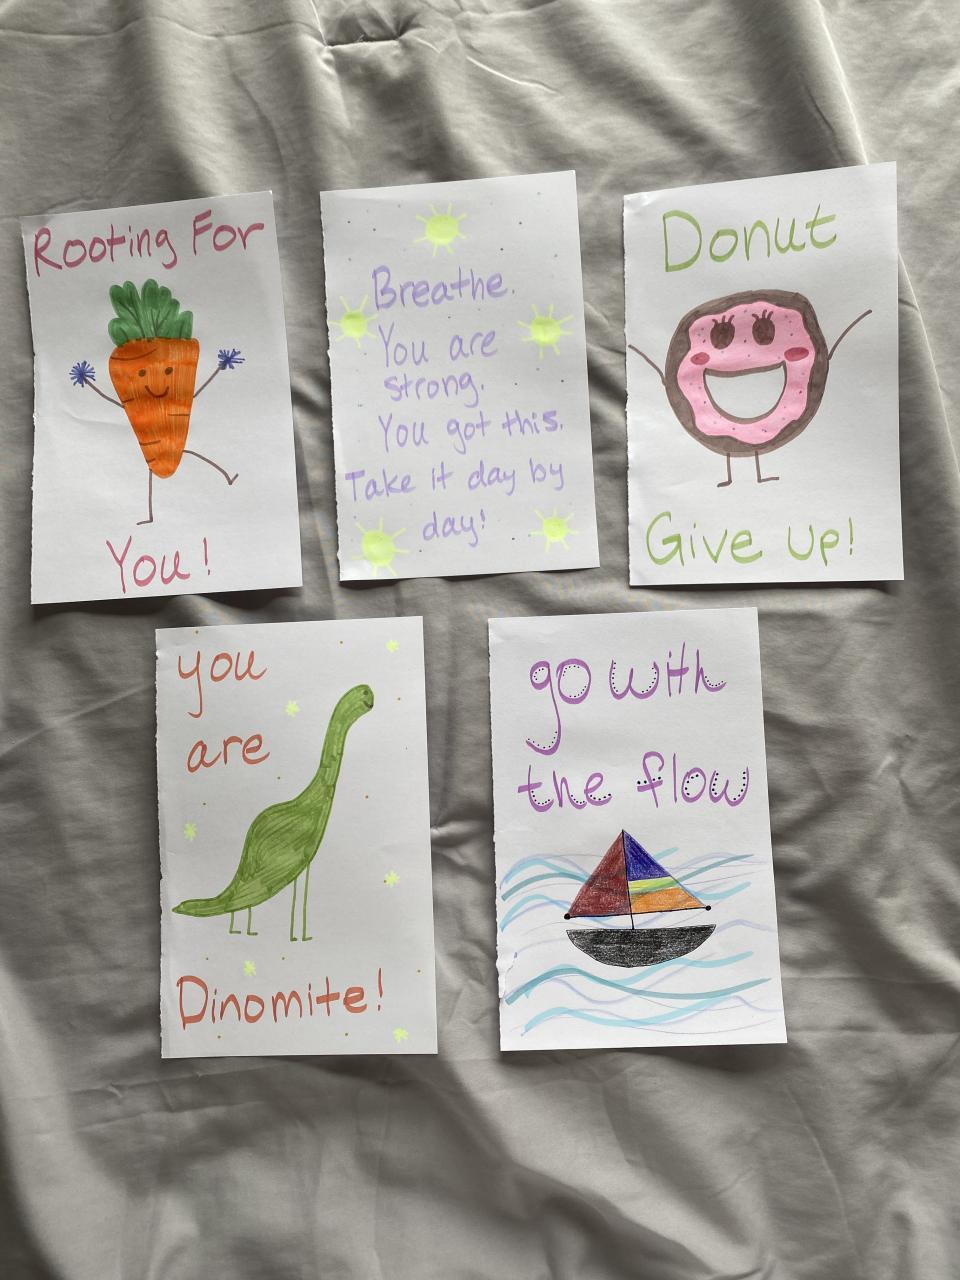 Rooting For
You!
Breathe.
You are
strong.
You got this.
Take it day by
day!
Donut
Give up!
you
are
Dinomite!
go with
the flow